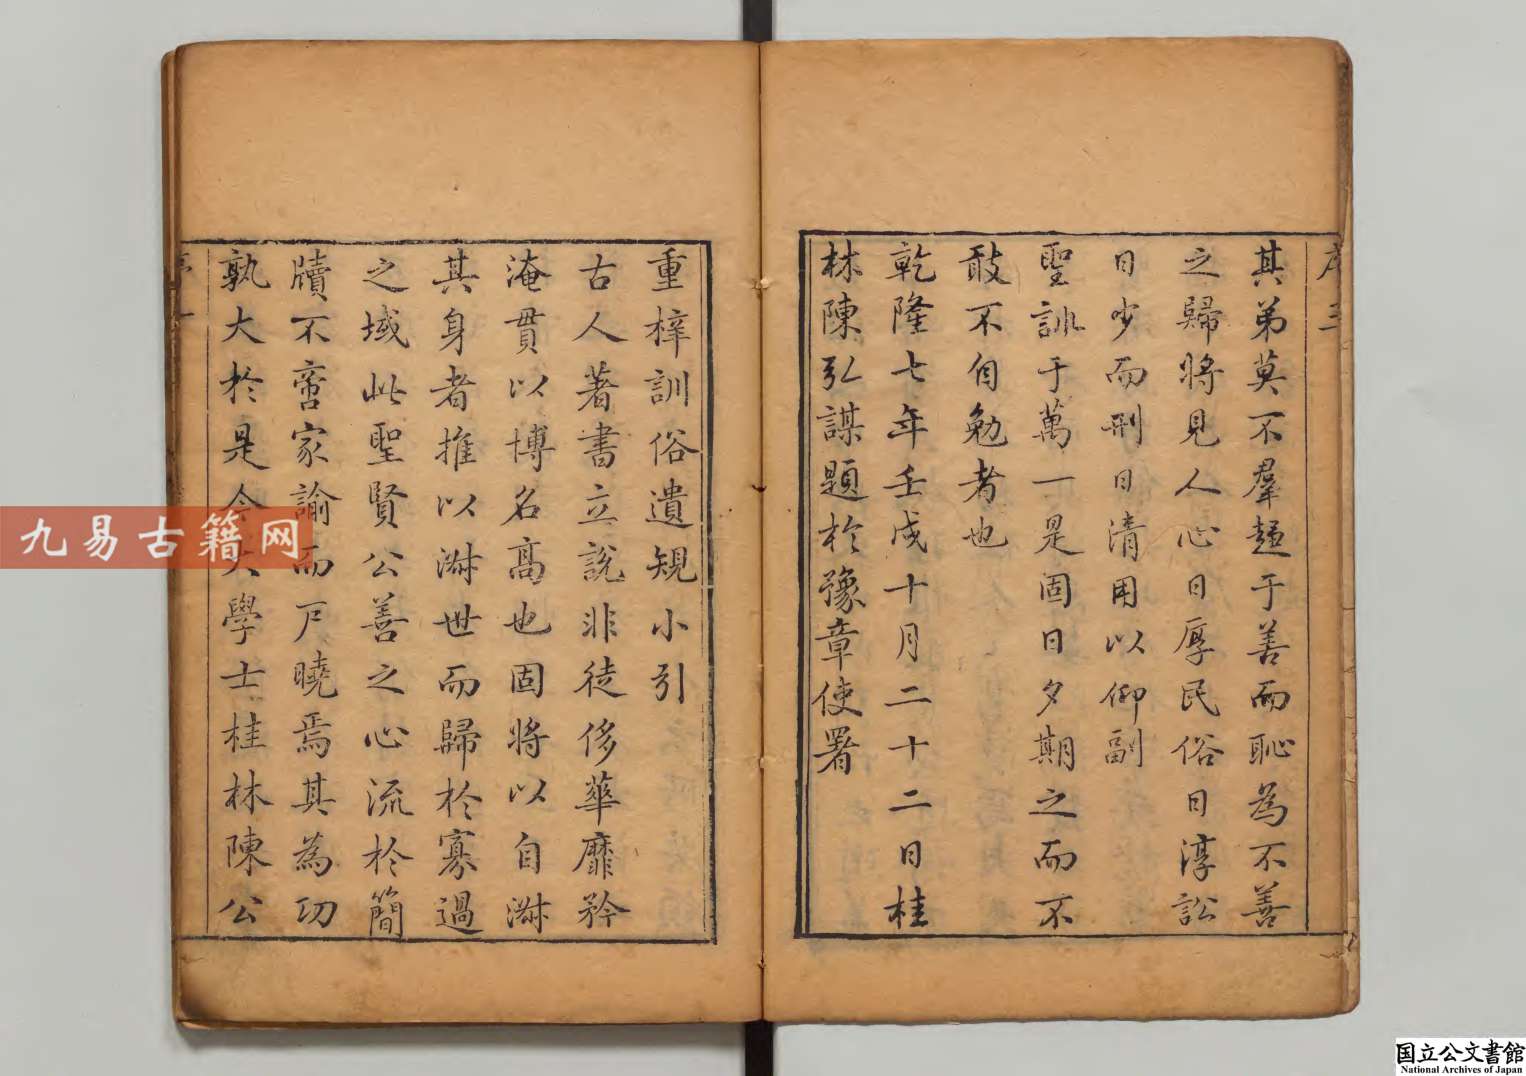 序三
其弟莫不羣趨于善而恥為不善
之歸將見人心日厚民俗日淳訟
日少而刑日清用以仰副
聖訓于萬一是固日夕期之而不
敢不自勉者也
乾隆七年壬戌十月二十二日桂
林陳弘謀題於豫章使署
重梓訓俗遺規小引
古人著書立說非徒侈華靡矜
淹貫以博名高也固將以自淑
其身者推以淑世而歸於寡過
之域此聖賢公善之心流於簡
牘不啻家諭而戸曉焉其為功
孰大於是今大學士桂林陳公
九易古籍网
国立公文書館
National Archives of Japan